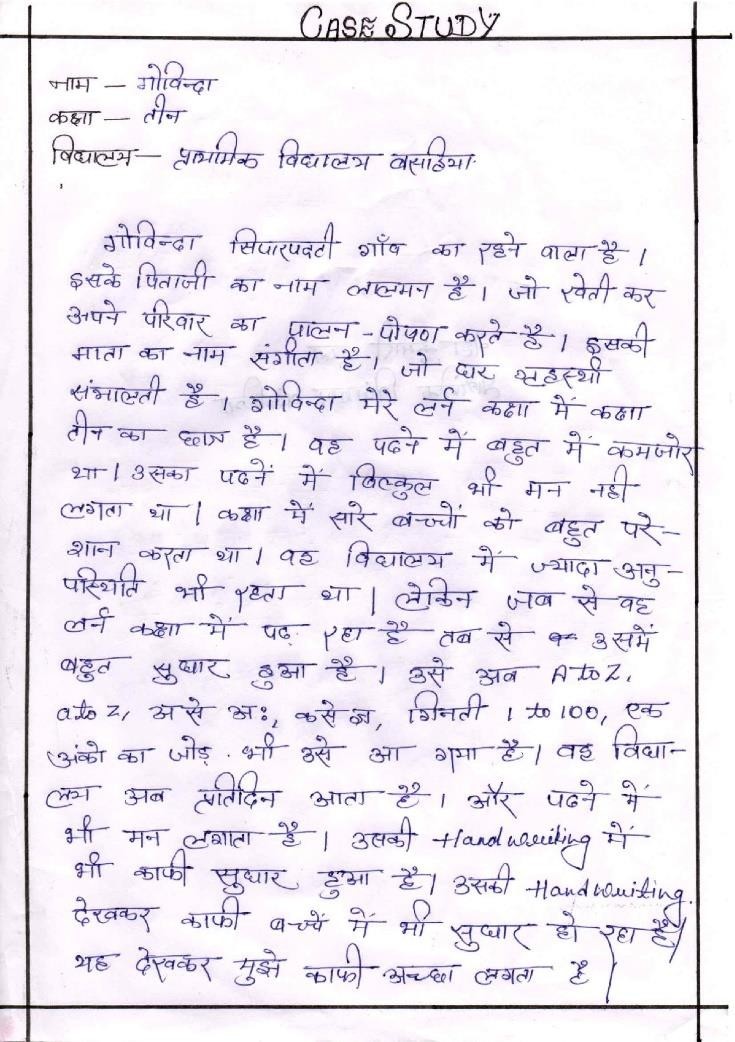 CASE STUDY
नाम – गोविन्दा
कक्षा – तीन
विद्यालय – प्राथमिक विद्यालय बसहिया
गोविन्दा सिपारपटटी गाँव का रहने वाला है।
इसके पिताजी का नाम लालमन है। जो खेती कर
अपने परिवार का पालन-पोषण करते है। इसकी
माता का नाम संगीता है। जो घर गृहस्थी
संभालती है। गोविन्दा मेरे लर्न कक्षा में कक्षा
तीन का छात्र है। वह पढने में बहुत में कमजोर
था। उसका पढनें में बिल्कुल भी मन नही
लगता था। कक्षा में सारे बच्चों को बहुत परे-
शान करता था। वह विद्यालय में ज्यादा अनु-
पस्थिति भी रहता था। लेकिन जब से वह
लर्न कक्षा में पढ़ रहा है तब से उसमें
बहुत सुधार हुआ है। उसे अब A to Z,
a to z, अ से अः, क से ज्ञ, गिनती 1 to 100, एक
अंको का जोड़ भी उसे आ गया है। वह विद्या-
लय अब प्रतिदिन आता है। और पढने में
भी मन लगाता है। उसकी Handwriting में
भी काफी सुधार हुआ है। उसकी Handwriting
देखकर काफी बच्चें में भी सुधार हो रहा है।
यह देखकर मुझे काफी अच्छा लगता है।